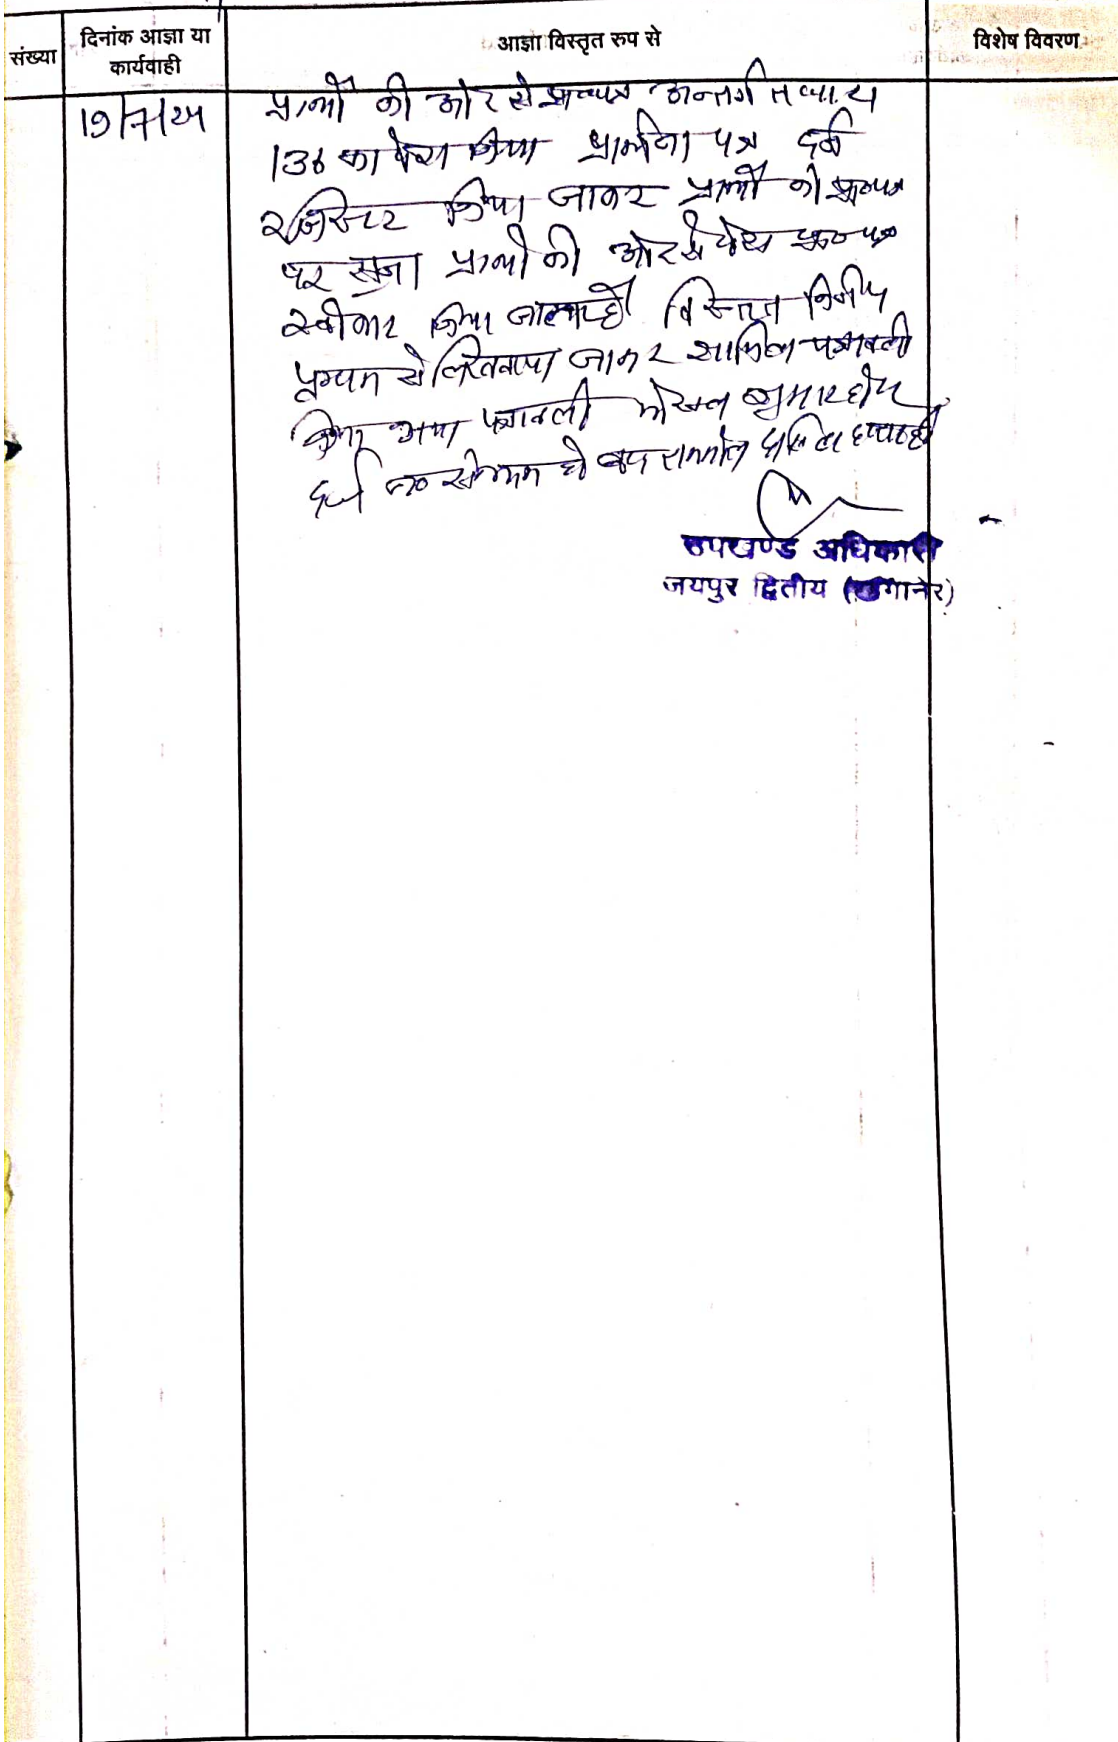 संख्या
दिनांक आज्ञा या
कार्यवाही
आज्ञा विस्तृत रुप से
विशेष विवरण
19/7/24
प्रार्थी की ओर से अन्तर्गत
136 का पेश किया प्रार्थना पत्र दर्ज
रजिस्टर किया जाकर प्रार्थी को
पर सुना प्रार्थी की ओर से पेश
स्वीकार किया जाता है विस्तृत निर्णय
पृथक से जाकर शामिल पत्रावली
किया गया पत्रावली फैसल शुमार होकर
दर्ज से कम हो बाद दाखिल दफ्तर हो
उपखण्ड अधिकारी
जयपुर द्वितीय (सांगानेर)